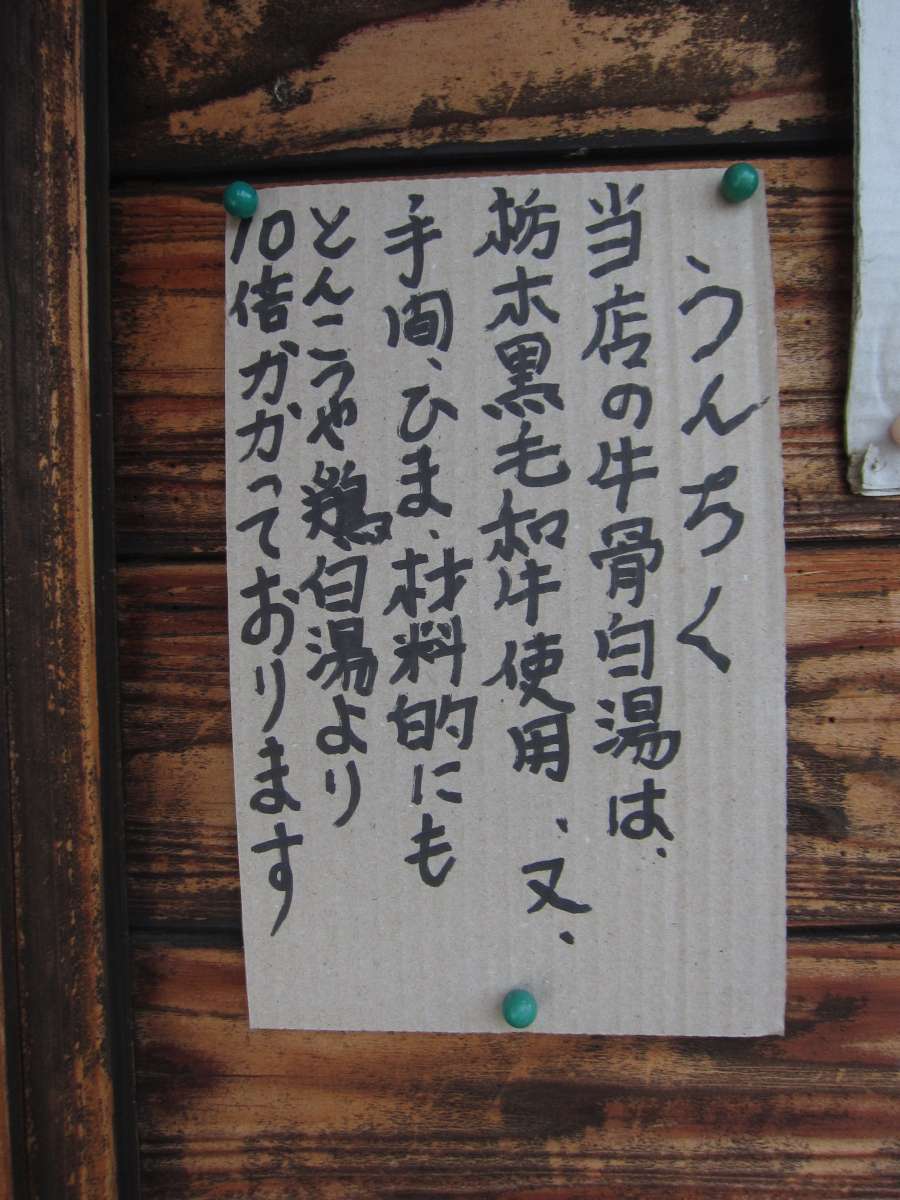 うんちく
当店の牛骨白湯は、
栃木黒毛和牛使用、又、
手間、ひま、材料的にも
とんこつや鶏白湯より
10倍かかっております